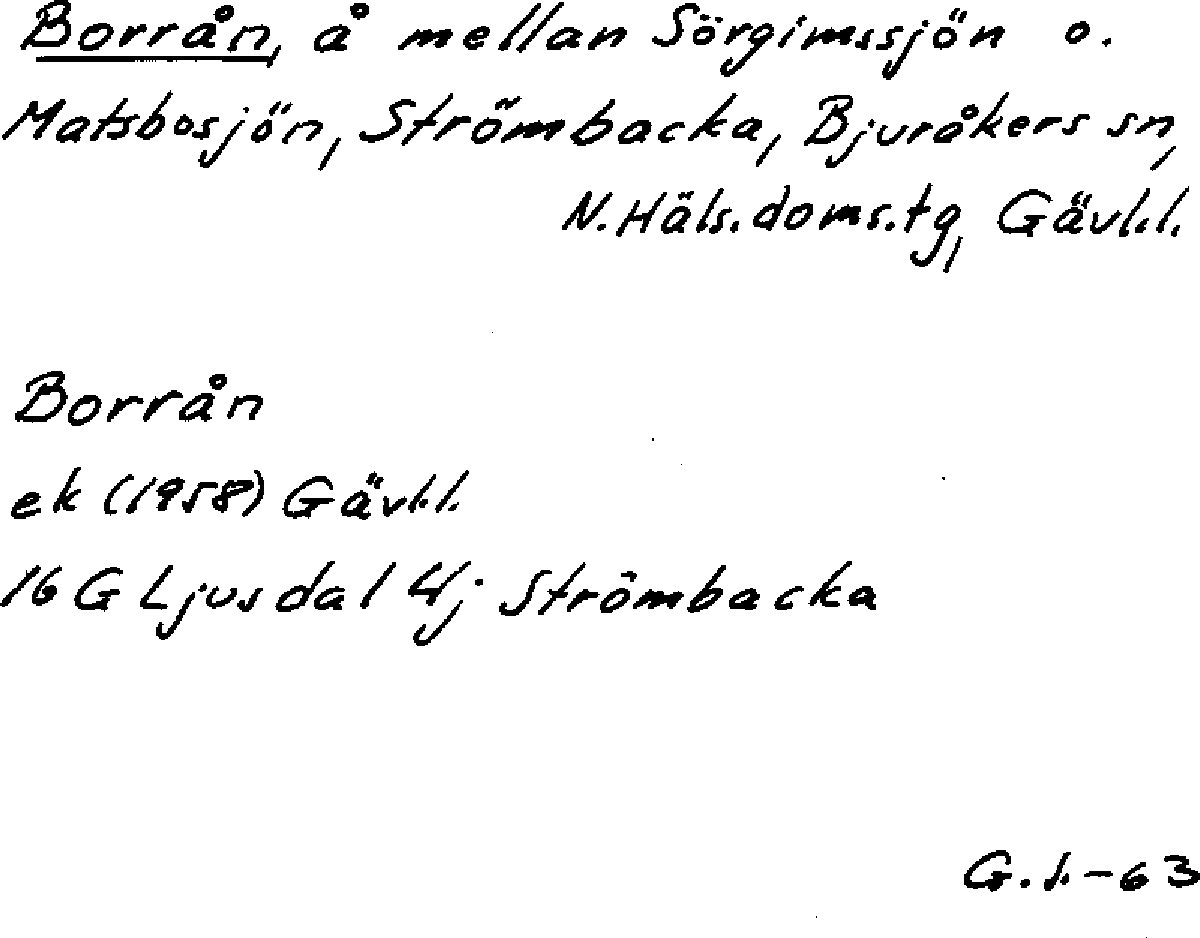 Borrån, å mellan Sörgimssjön o.
Matsbosjön, Strömbacka, Bjuråkers sn,
N. Häls. doms. tg, Gävl.l.
Borrån
ek (1958) Gävl.l.
16 G Ljusdal 4j Strömbacka
G.S.-63